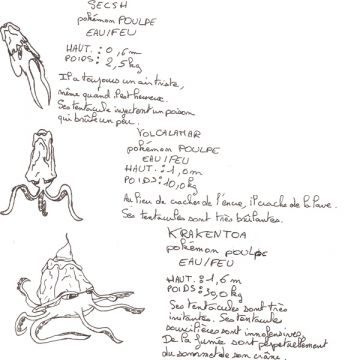 SECSH
pokémon POULPE
EAU/FEU
HAUT. : 0,6m
POIDS : 2,5kg
Il a toujours un air triste,
même quand il est heureux.
Ses tentacule injectent un poison
qui brûle un peu.
VOLCALAMAR
pokémon POULPE
EAU/FEU
HAUT. : 1,0m
POIDS : 10,0kg
Au lieu de cracher de l'encre, il crache de la lave.
Ses tentacules sont très brûlantes.
KRAKENTOA
pokémon poulpe
EAU/FEU
HAUT. : 1,6m
POIDS : 30,0kg
Ses tentacules sont très
irritantes. Ses tentacules
sourcilières sont inoffensives.
De la fumée sort perpétuellement
du sommet de son crâne.